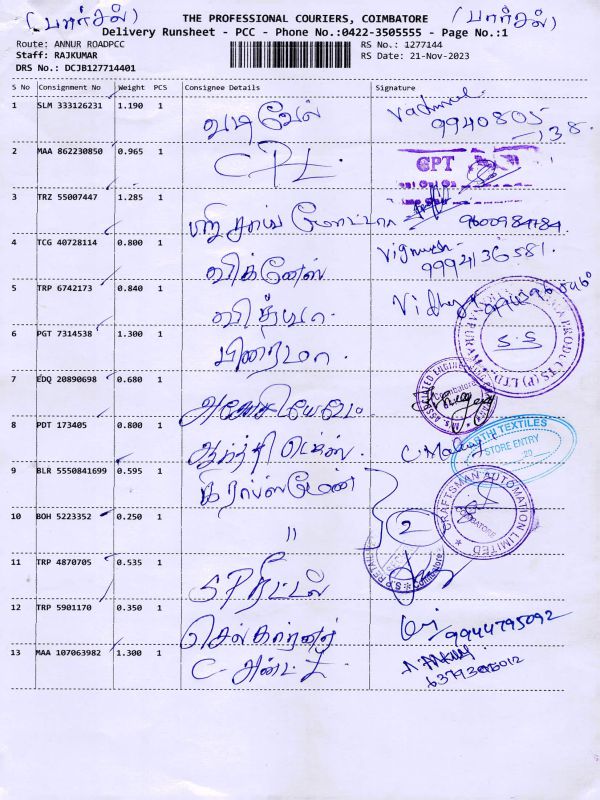 (பார்சல்) THE PROFESSIONAL COURIERS, COIMBATORE (பார்சல்)
Delivery Runsheet - PCC - Phone No.:0422-3505555 - Page No.:1
Route: ANNUR ROADPCC RS No.: 1277144
Staff: RAJKUMAR RS Date: 21-Nov-2023
DRS No.: DCJB127714401
S No Consignment No Weight PCS Consignee Details Signature
1 SLM 333126231 1.190 1 வடிவேல்
2 MAA 862230850 0.965 1 GPT
3 TRZ 55007447 1.285 1
4 TCG 40728114 0.800 1 விக்னேஸ் 9994136581.
5 TRP 6742173 0.840 1 வித்யா Vidhya
6 PGT 7314538 1.300 1 S.S
7 EDQ 20890698 0.680 1 Coimbatore
8 PDT 173405 0.800 1 TEXTILES STORE ENTRY
9 BLR 5550841699 0.595 1 கிராப்ஸ்மேன் CRAFTSMAN AUTOMATION LIMITED
10 BOH 5223352 0.250 1 " 2
11 TRP 4870705 0.535 1 S.P ரீட்டல் S.P RETAIL
12 TRP 5901170 0.350 1 9944795092
13 MAA 107063982 1.300 1